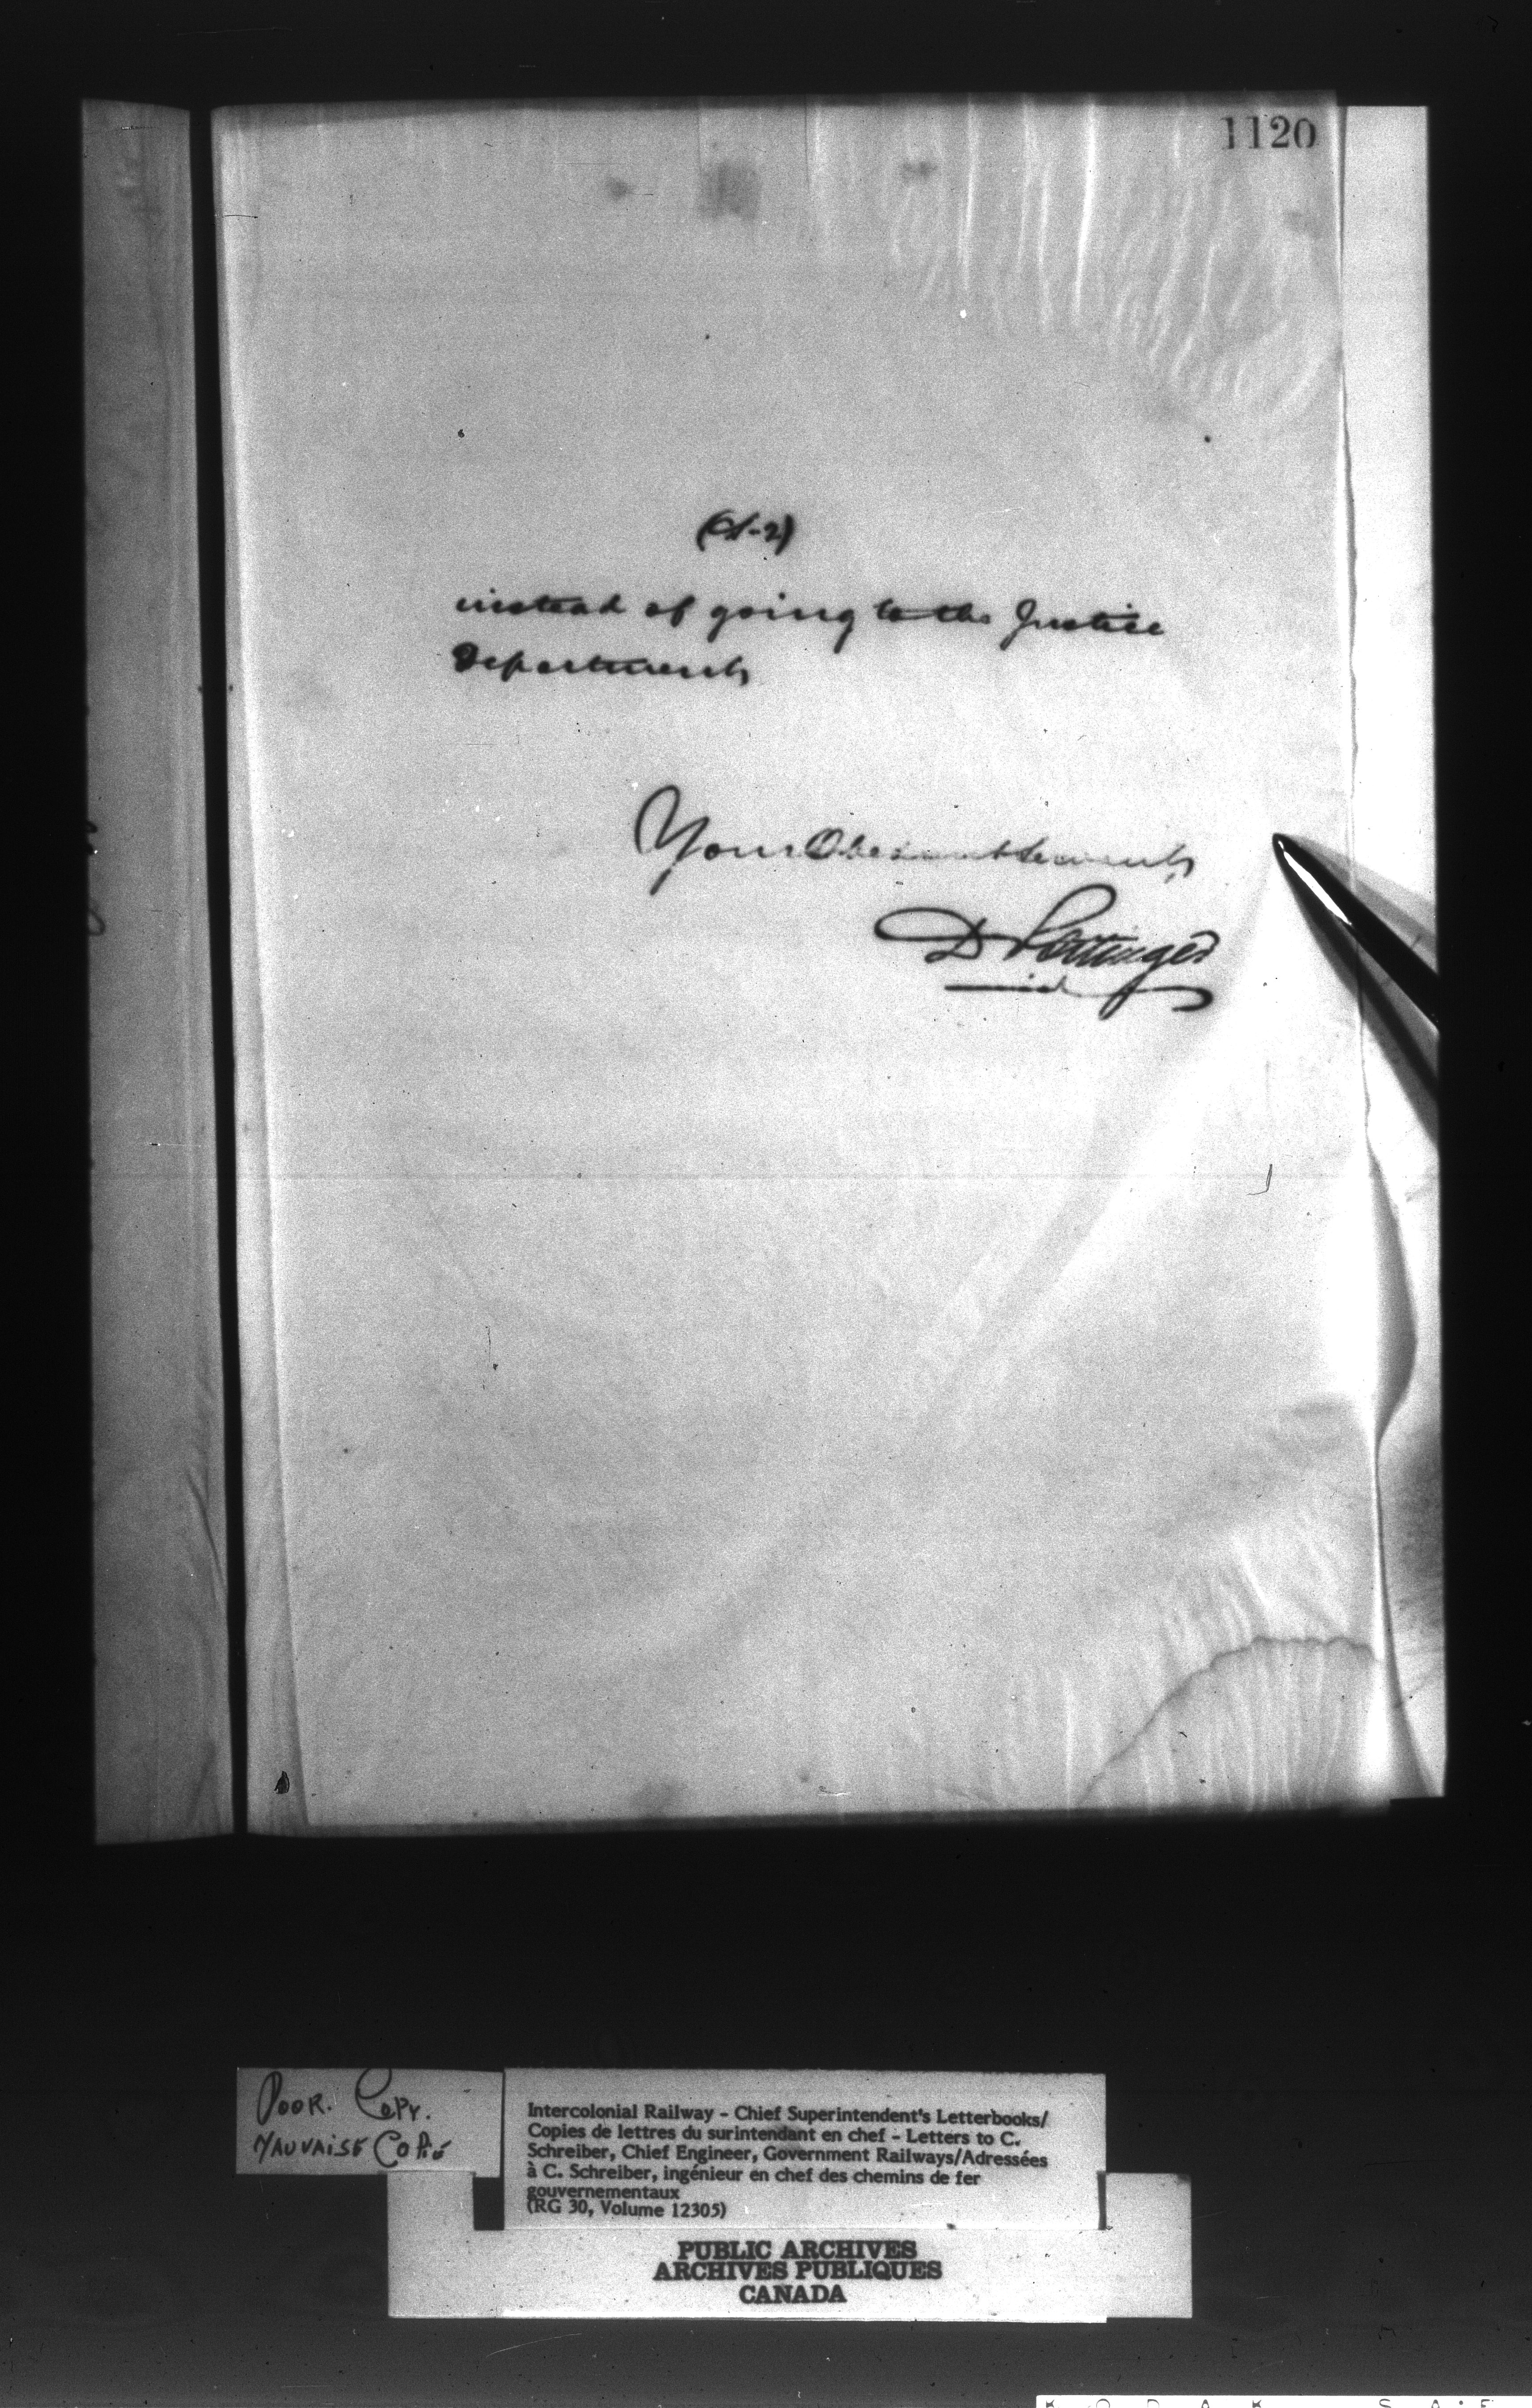 1120
instead of going to the Justice
Department
Your Obedient Servant
D Pottinger
POOR. COPY.
MAUVAISE COPIE
Intercolonial Railway - Chief Superintendent's Letterbooks/
Copies de lettres du surintendant en chef - Letters to C.
Schreiber, Chief Engineer, Government Railways/Adressées
à C. Schreiber, ingénieur en chef des chemins de fer
gouvernementaux
(RG 30, Volume 12305)
PUBLIC ARCHIVES
ARCHIVES PUBLIQUES
CANADA